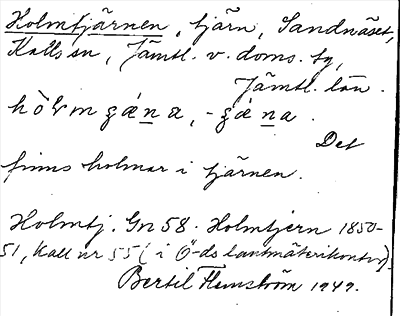 Holmtjärnen, tjärn, Sandnäset,
Kalls sn, Jämtl. v. doms. tg,
Jämtl. län.
hòɫmʒǽna, -ʒǽna.
Det
finns holmar i tjärnen.
Holmtj. Gn 58. Holmtjern 1850-
51, Kall nr 55 (i Ö-ds lantmäterikontor).
Bertil Flemström 1949.